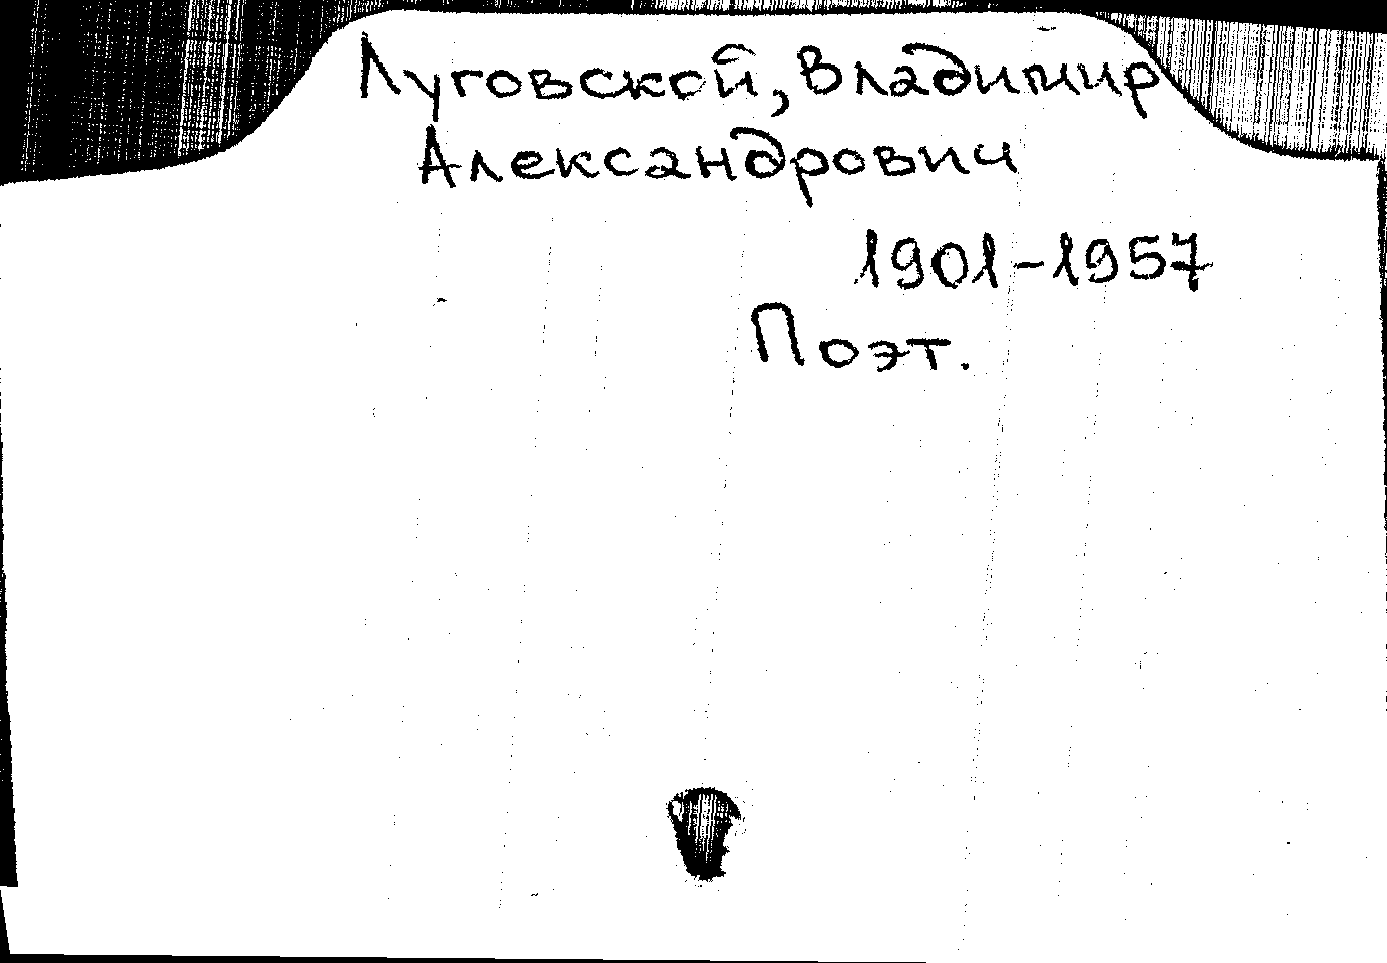 Луговской, Владимир
Александрович
1901-1957
Поэт.